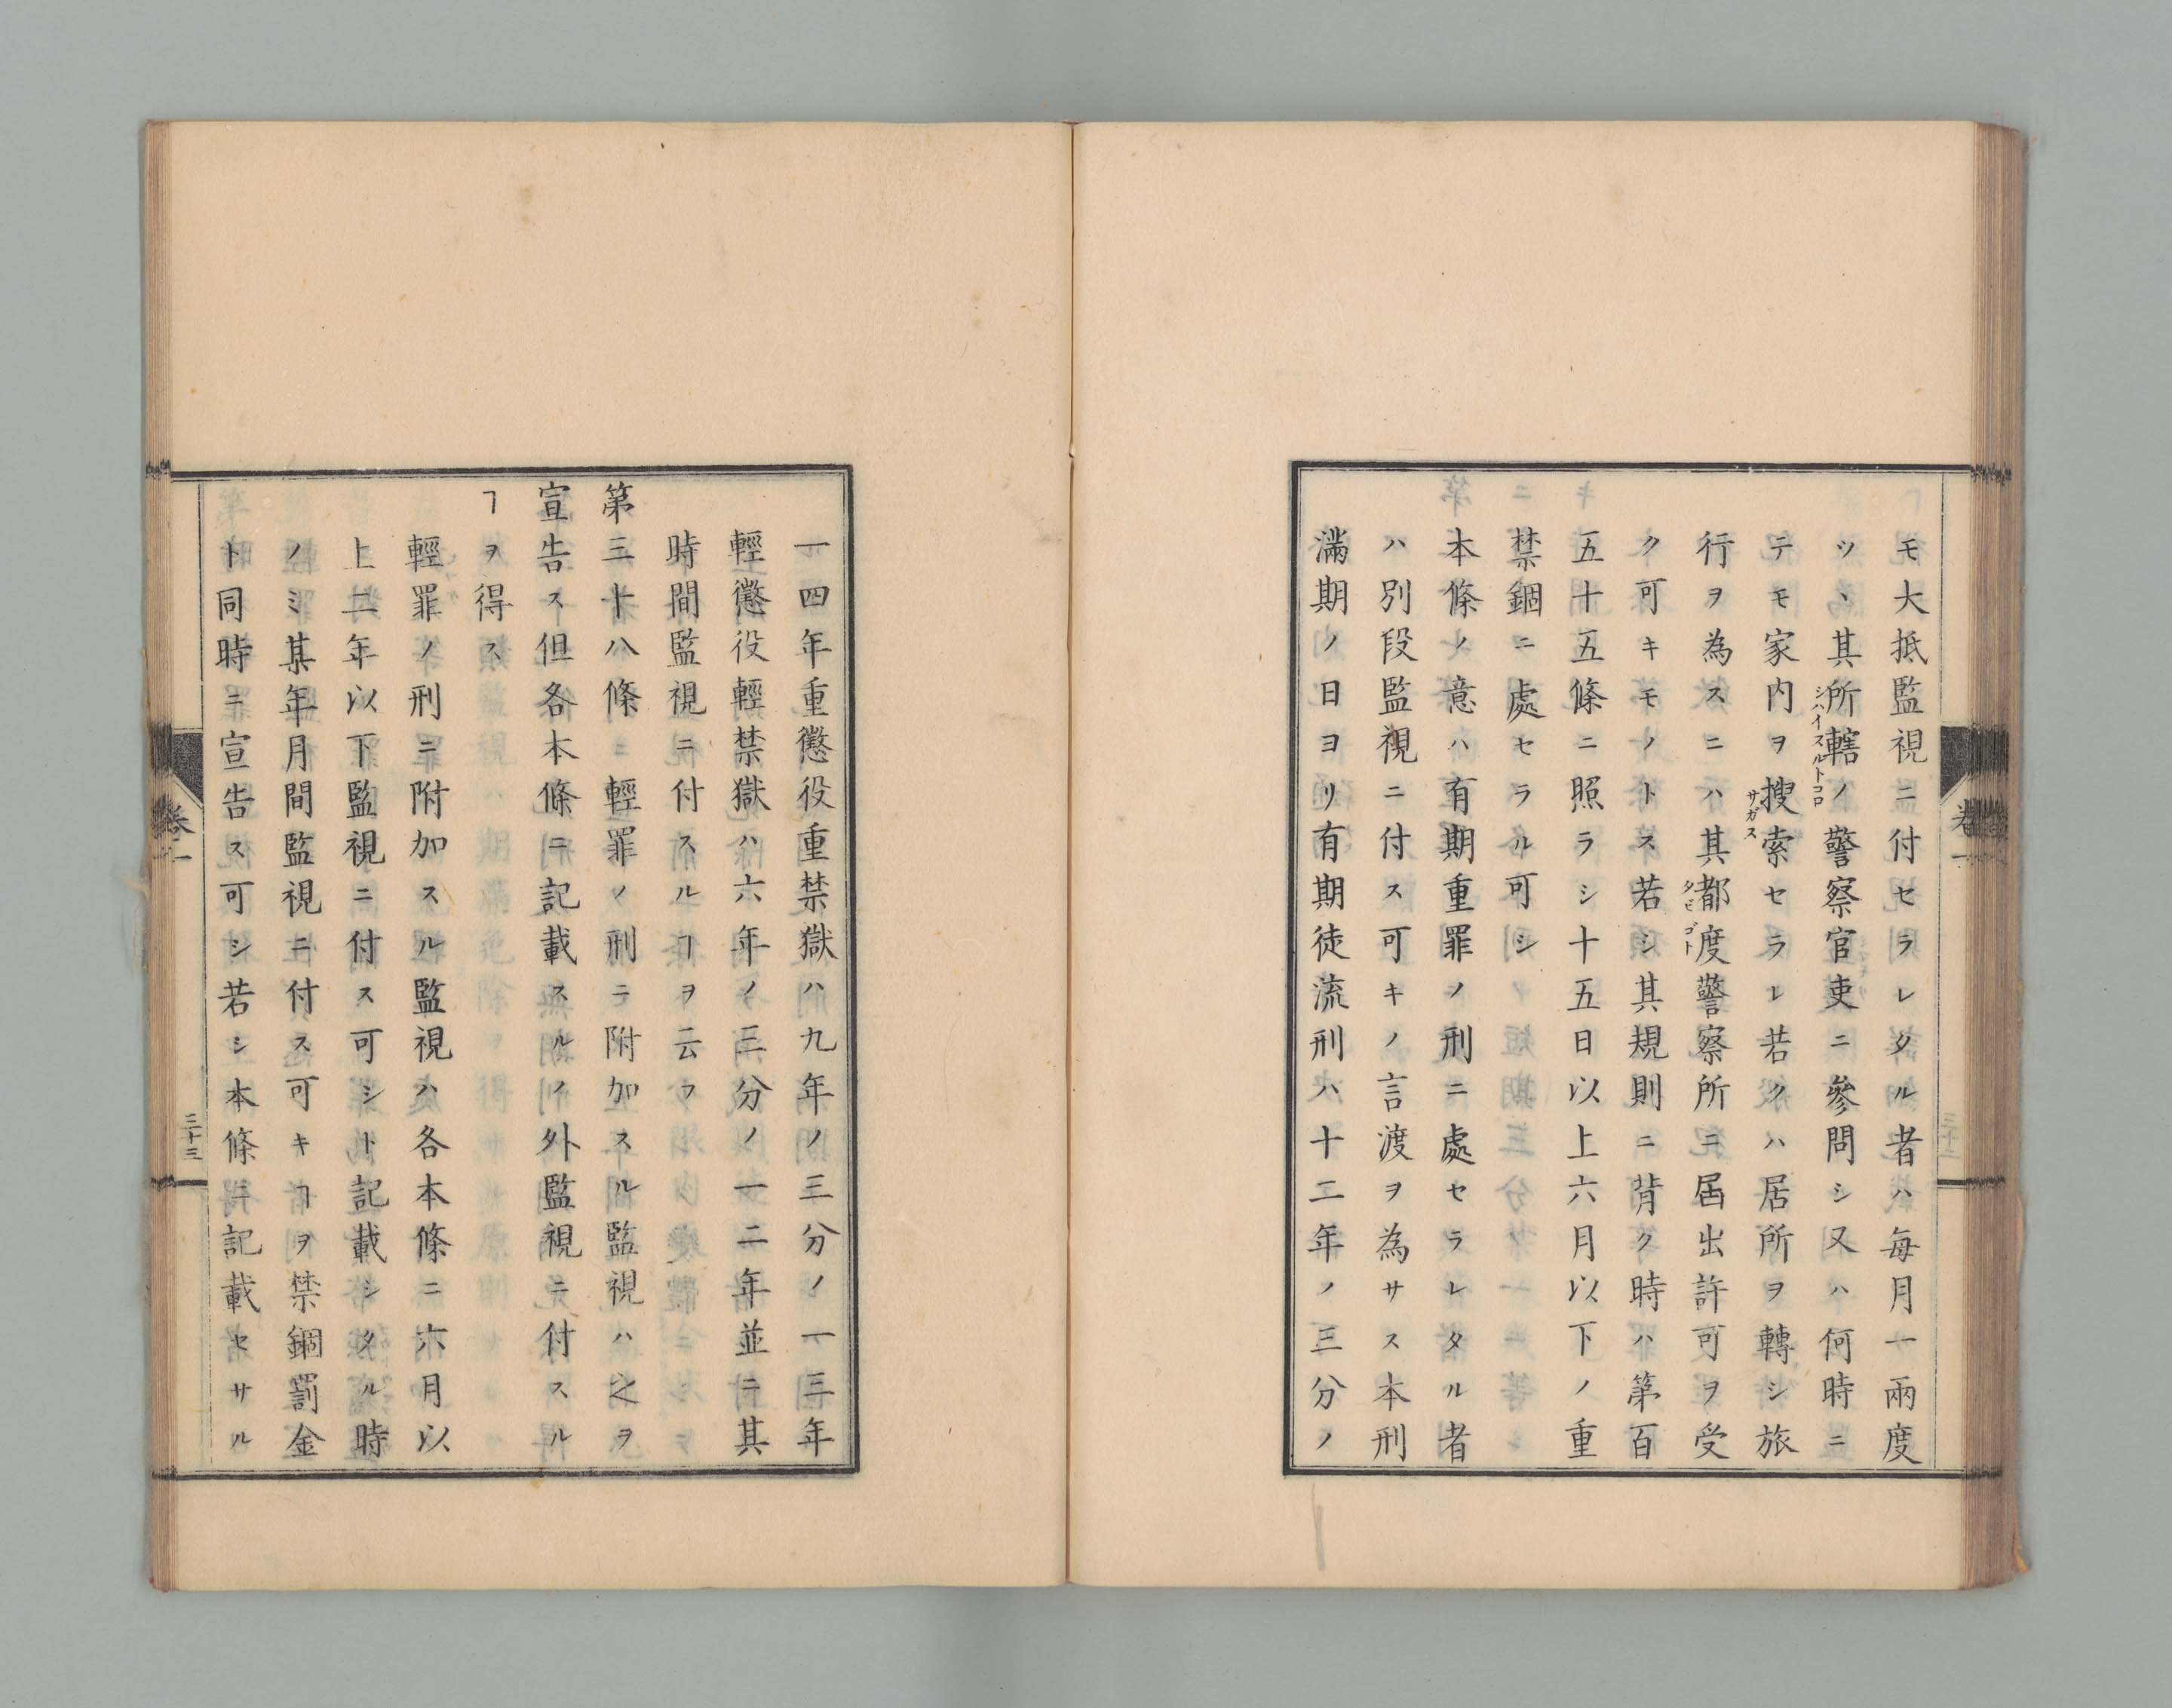 モ大抵監視ニ付セラレタル者ハ毎月一兩度
ツヽ其所轄ノ警察官吏ニ參問シ又ハ何時ニ
シハイスルトコロ
テモ家内ヲ搜索セラレ若クハ居所ヲ轉シ旅
サガス
行ヲ為スニハ其都度警察所ニ届出許可ヲ受
タビゴト
ク可キモノトス若シ其規則ニ背ク時ハ第百
五十五條ニ照ラシ十五日以上六月以下ノ重
禁錮ニ處セラル可シ
本條ノ意ハ有期重罪ノ刑ニ處セラレタル者
ハ別段監視ニ付ス可キノ言渡ヲ為サス本刑
滿期ノ日ヨリ有期徒流刑ハ十二年ノ三分ノ
卷一
一四年重懲役重禁獄ハ九年ノ三分ノ一三年
輕懲役輕禁獄ハ六年ノ三分ノ一二年並ニ其
時間監視ニ付スルヿヲ云フ
第三十八條 輕罪ノ刑ニ附加スル監視ハ之ヲ
宣告ス但各本條ニ記載スルノ外監視ニ付スル
ヿヲ得ス
輕罪ノ刑ニ附加スル監視ハ各本條ニ六月以
上二年以下監視ニ付ス可シト記載シタル時
ノミ某年月間監視ニ付ス可キヿヲ禁錮罰金
ト同時ニ宣告ス可シ若シ本條ニ記載セサル
卷一
三十三